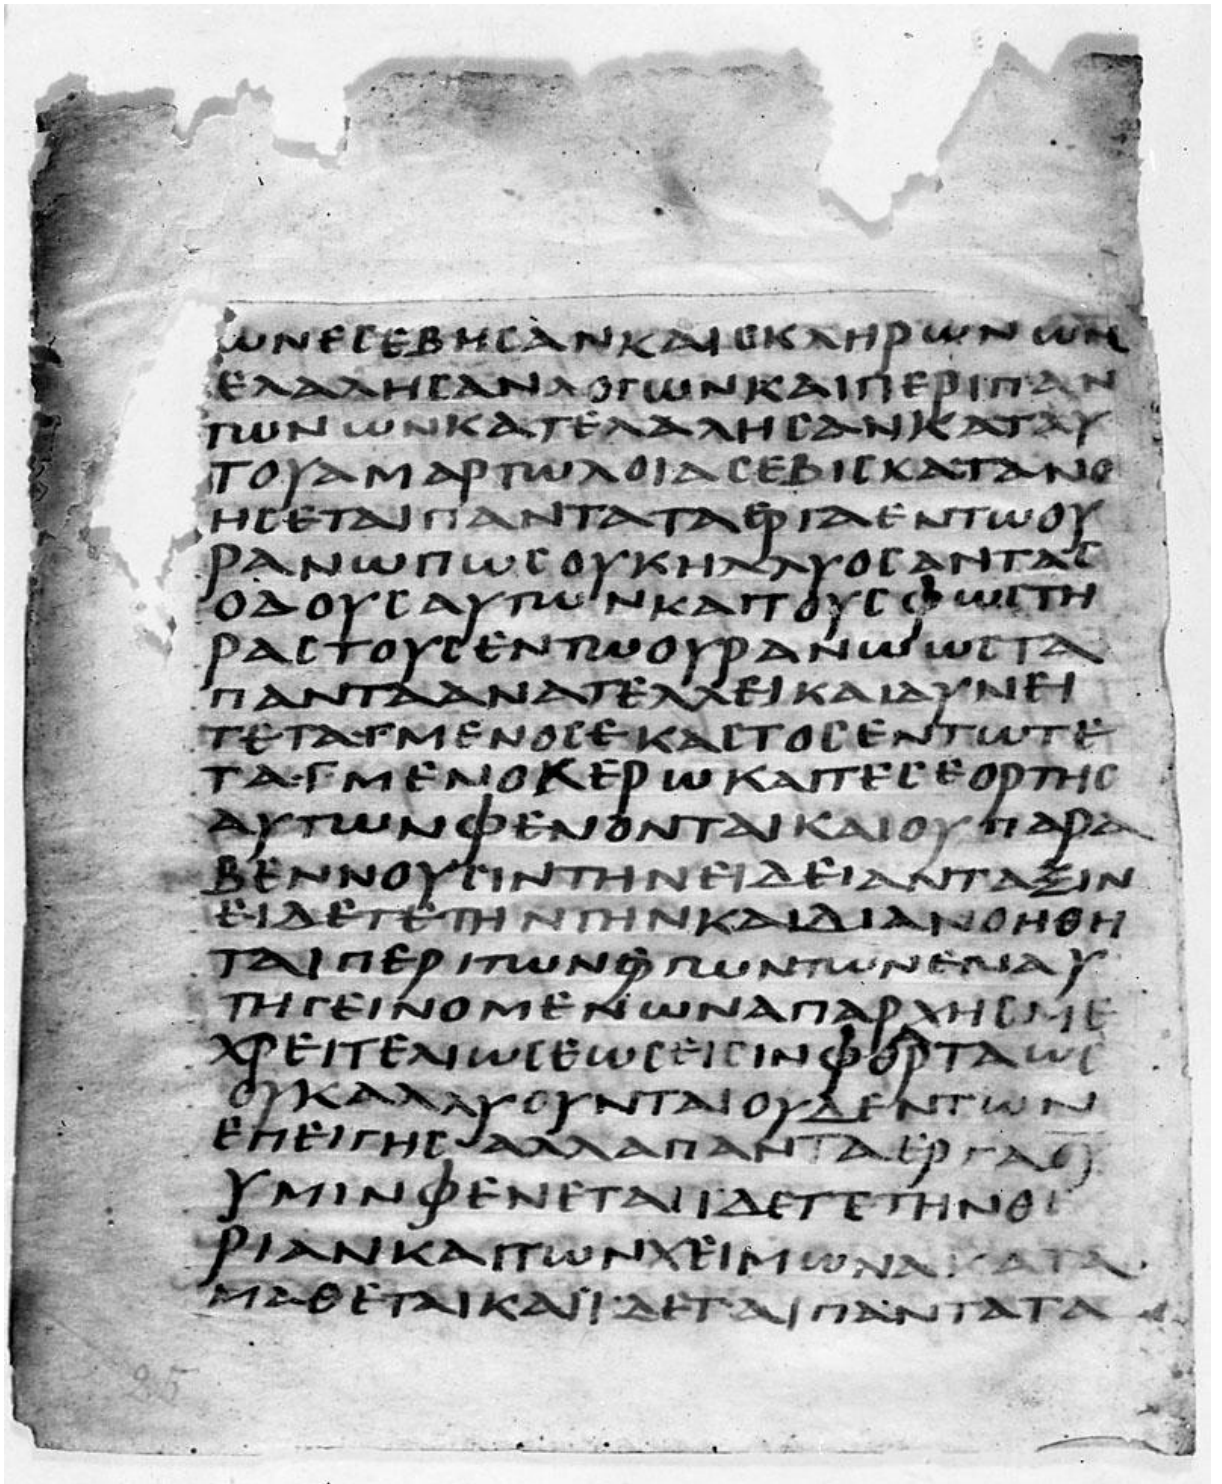 ωνεσεβησανκαισκληρωνων
ελαλησανλογωνκαιπεριπαν
τωνωνκατελαλησανκαταυ
τουαμαρτωλοιασεβισκατανο
ησεταιπανταταεργαεντωου
ρανωπωσουκηλλυοσαντασ
οδουσαυτωνκαιτουσφωστη
ραστουσεντωουρανωωστα
πανταανατελλεικαιδυνει
τεταγμενοσεκαστοσεντωτε
ταγμενοκερωκαιτεσεορτησ
αυτωνφενονταικαιουπαρα
βεννουσιντηνειδειανταξιν
ειδετετηνγηνκαιδιανοηθη
ταιπεριτωνεργωντωνεναυ
τηγεινομενωναπαρχησμε
χρειτελιωσεωσεισινφθορταωσ
ουκαλλυουνταιουδεντων
επειγησαλλαπανταεργαθυ
υμινφενεταιιδετετηνθε
ριανκαιτωνχειμωνακατα
μαθεταικαιιδεταιπαντατα
25